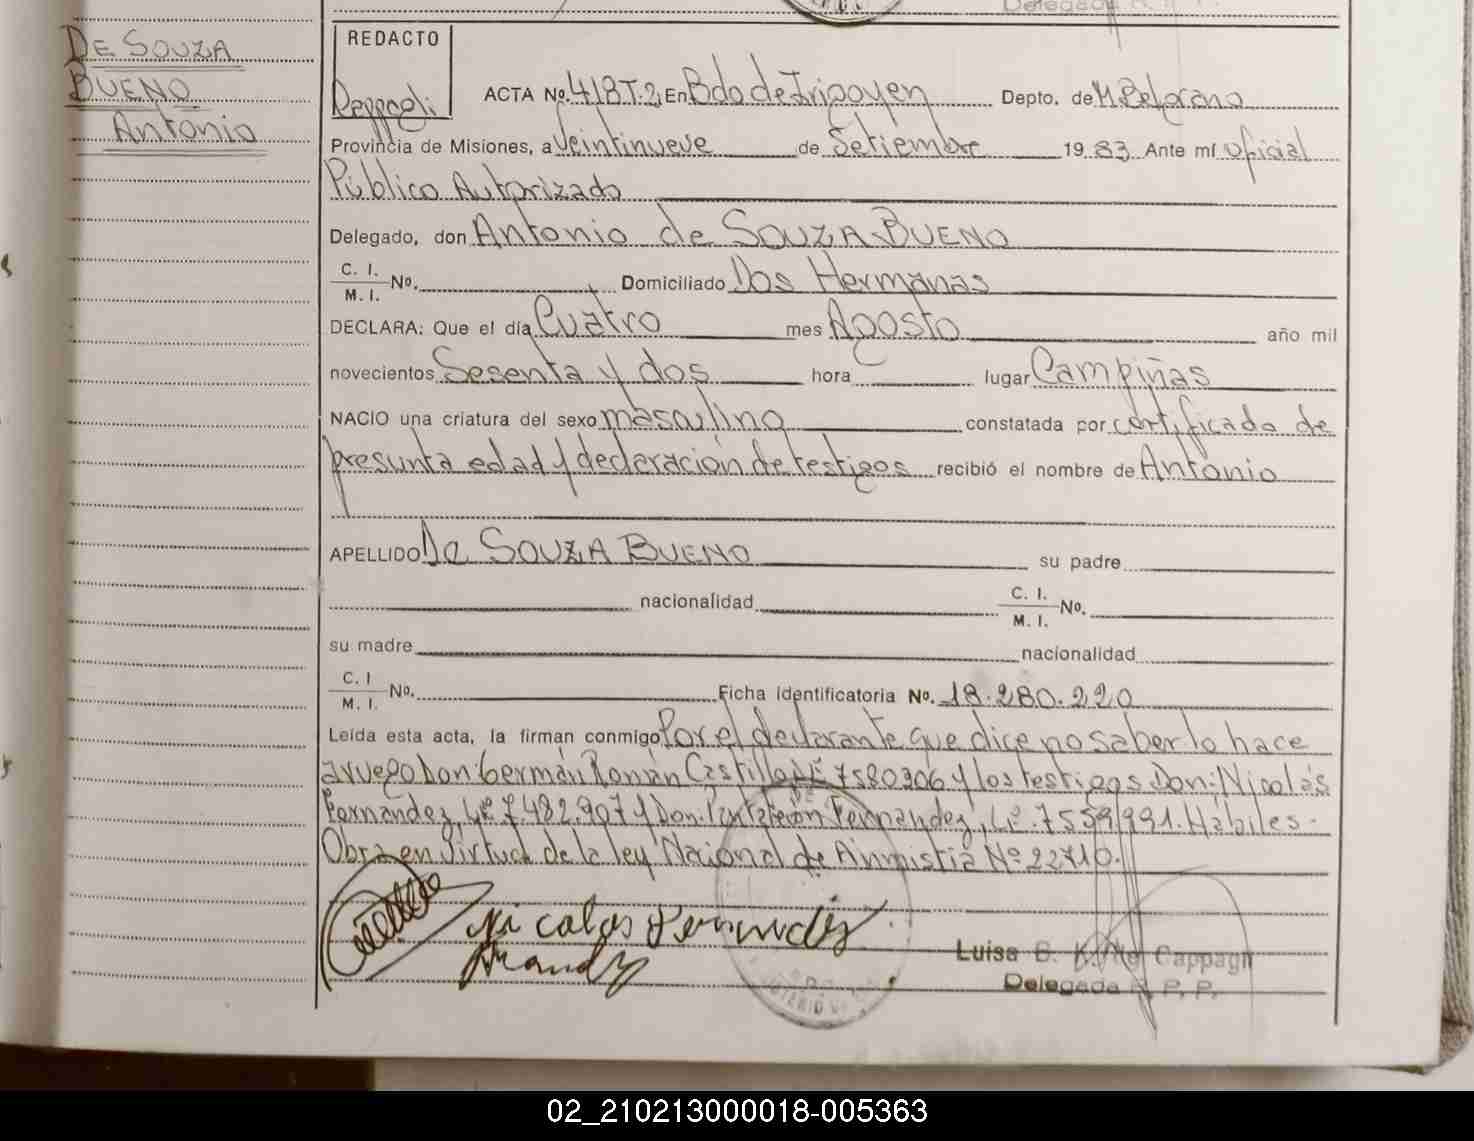 DE SOUZA
BUENO
Antonio
REDACTO
ACTA No. 418 T.2 En Bdo de Irigoyen Depto. de M. Belgrano
Provincia de Misiones, a Veintinueve de Setiembre 1983 Ante mí oficial
Público Autorizado
Delegado, don Antonio de SOUZA BUENO
C. I.
M. I. No. Domiciliado Dos Hermanas
DECLARA: Que el día Cuatro mes Agosto año mil
novecientos Sesenta y dos hora lugar Campiñas
NACIO una criatura del sexo masculino constatada por certificado de
presunta edad y declaración de testigos recibió el nombre de Antonio
APELLIDO De SOUZA BUENO su padre
nacionalidad C. I.
M. I. No.
su madre nacionalidad
C. I
M. I. No. Ficha Identificatoria No. 18.280.220
Leída esta acta, la firman conmigo Por el declarante que dice no saberlo hace
a ruego Don: Germán Román Castillo LE 7580306 y los testigos Don: Nicolás
Fernández, Le. 7.482.907 y Don: Pantaleón Fernández, Le. 7559991. Hábiles.
Obra en virtud de la ley Nacional de Aminstia Nº 22710.
Nicolas Fernandez
Luisa Cappagli
Delegada R. P. P.
02_210213000018-005363